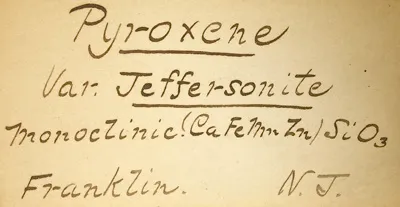 Pyroxene
Var. Jeffersonite
Monoclinic! (CaFeMnZn)SiO₃
Franklin. N. J.